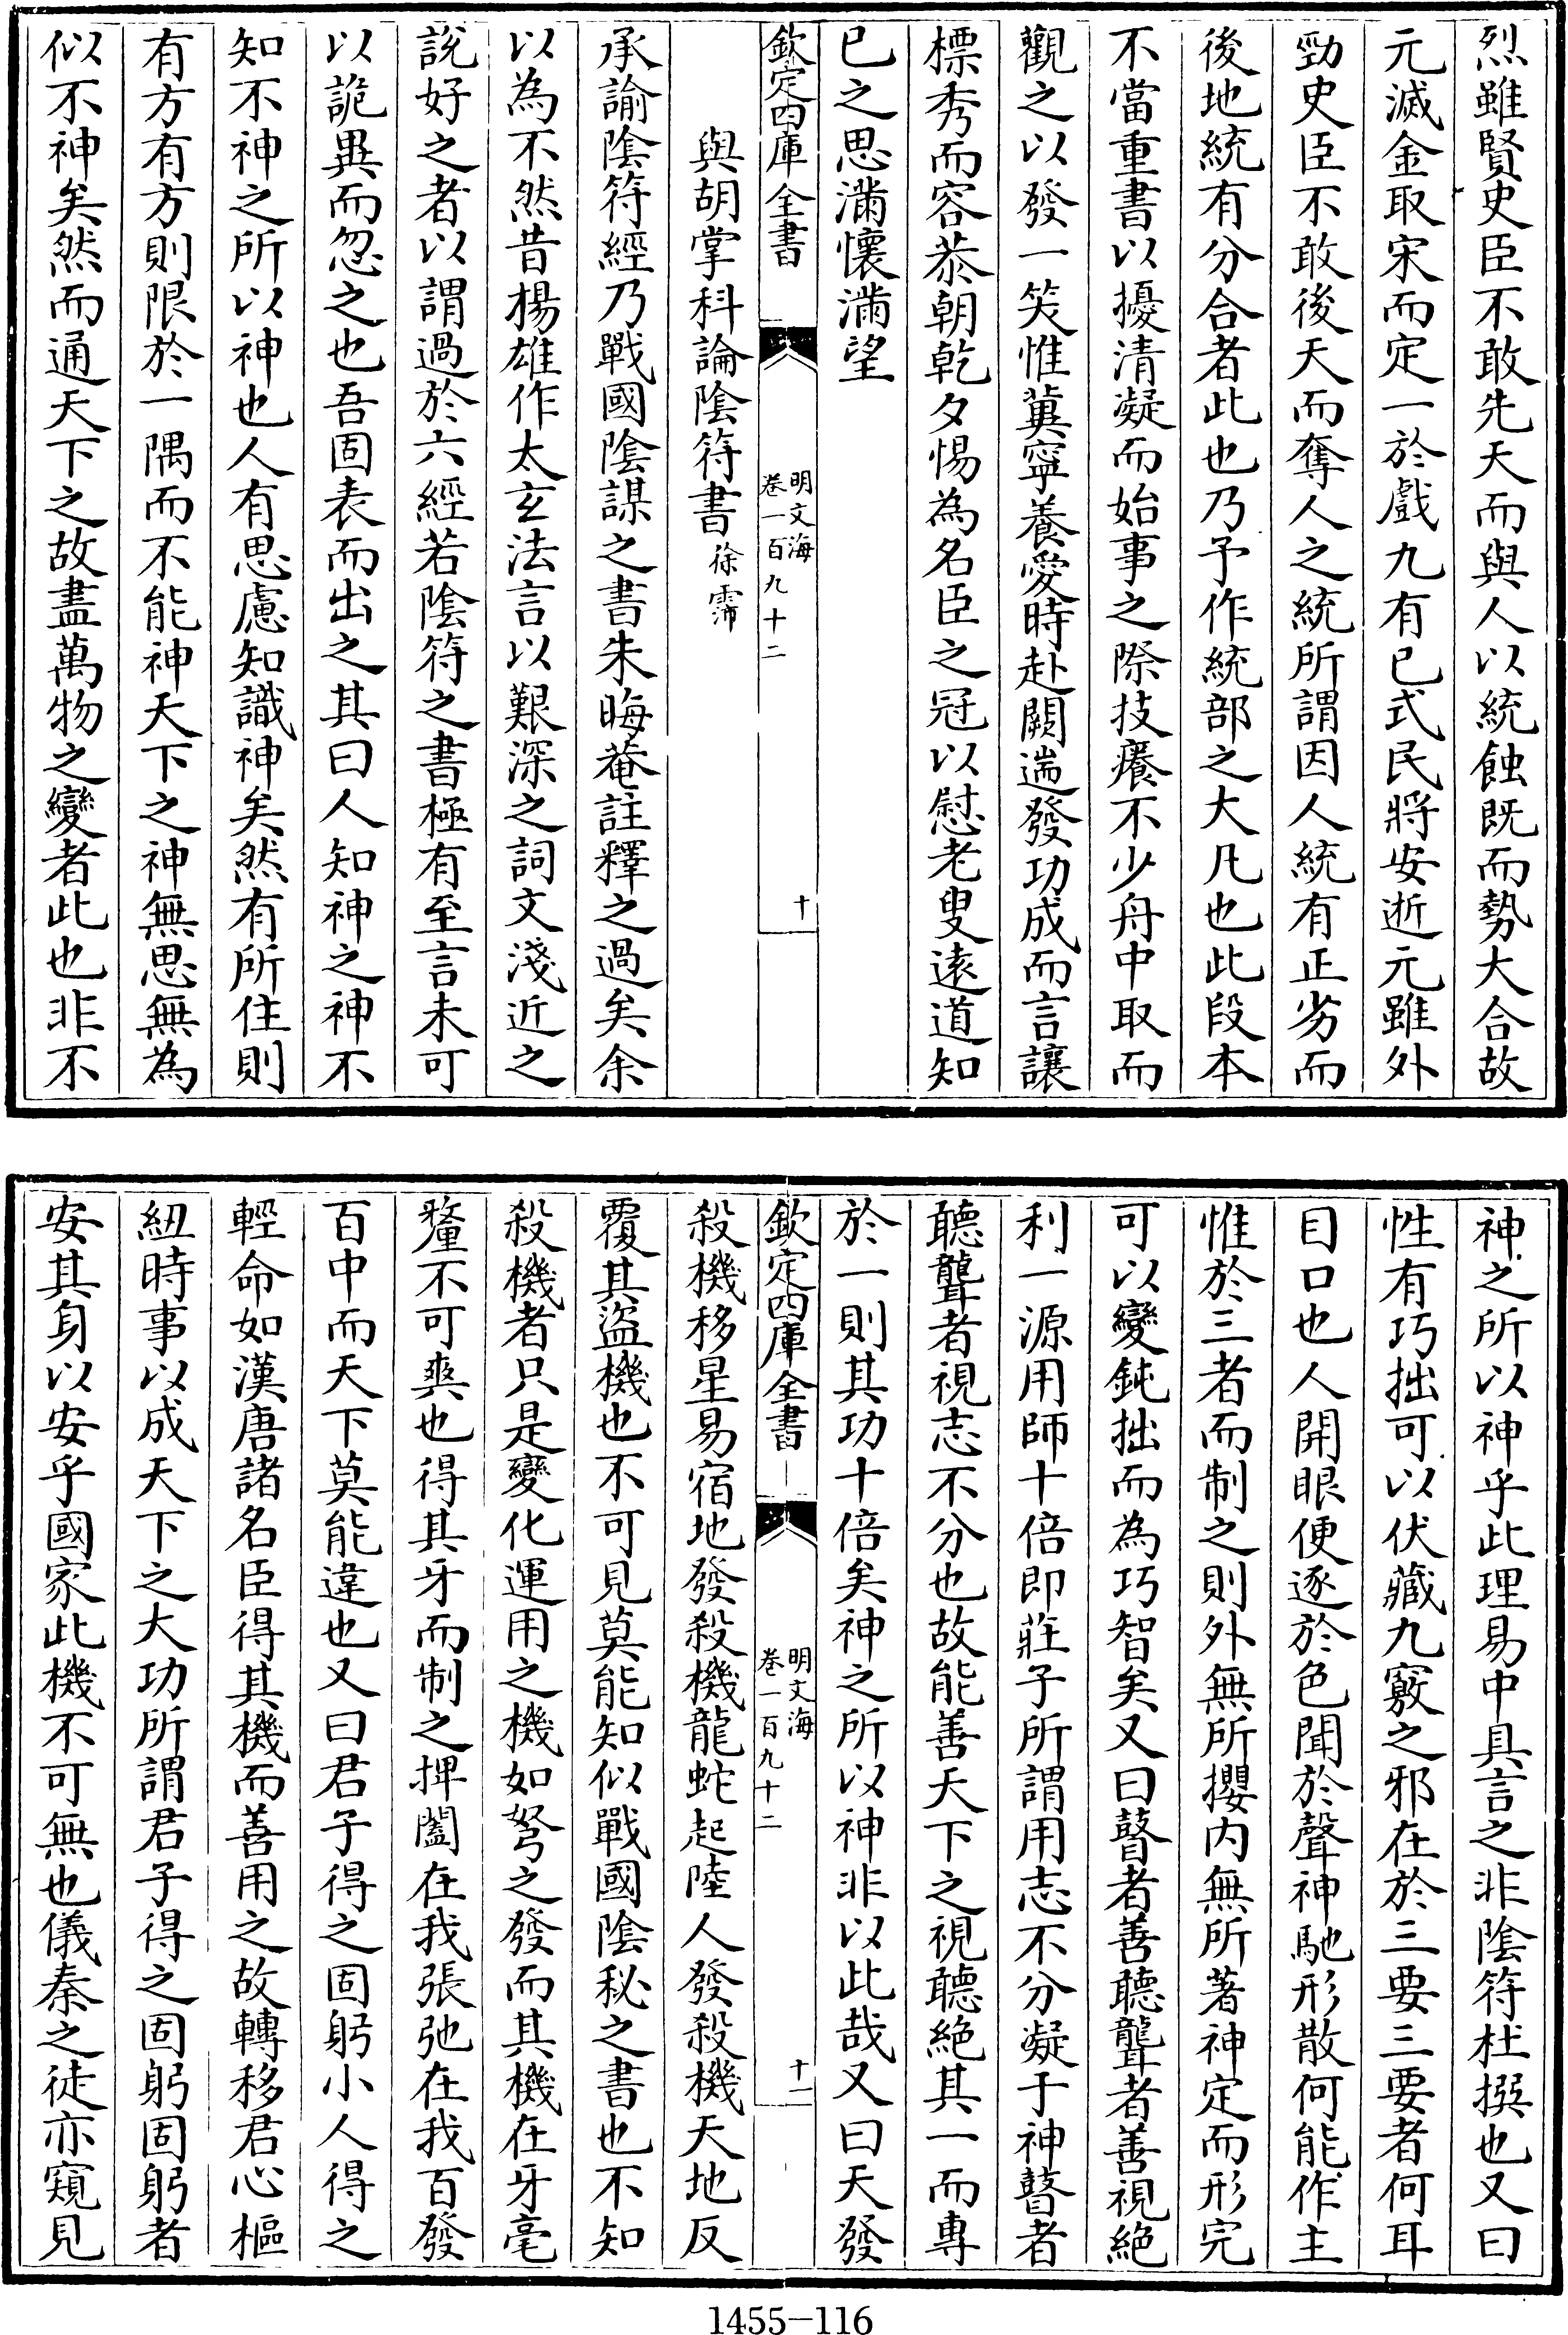 烈雖賢史臣不敢先天而與人以統蝕既而勢大合故
元滅金取宋而定一於戲九有已式民將安逝元雖外
勁史臣不敢後天而奪人之統所謂因人統有正劣而
後地統有分合者此也乃予作統部之大凡也此段本
不當重書以擾清凝而始事之際技癢不少舟中取而
觀之以發一笑惟冀寧養愛時赴闕遄發功成而言讓
標秀而容恭朝乾夕惕為名臣之冠以慰老叟遠道知
已之思滿懷滿望
欽定四庫全書
明文海
卷一百九十二
十
與胡掌科論陰符書徐霈
承諭陰符經乃戰國陰謀之書朱晦菴註釋之過矣余
以為不然昔楊雄作太玄法言以艱深之詞文淺近之
說好之者以謂過於六經若陰符之書極有至言未可
以詭異而忽之也吾固表而出之其曰人知神之神不
知不神之所以神也人有思慮知識神矣然有所住則
有方有方則限於一隅而不能神天下之神無思無為
似不神矣然而通天下之故盡萬物之變者此也非不
神之所以神乎此理易中具言之非陰符杜撰也又曰
性有巧拙可以伏藏九竅之邪在於三要三要者何耳
目口也人開眼便逐於色聞於聲神馳形散何能作主
惟於三者而制之則外無所攖内無所著神定而形完
可以變鈍拙而為巧智矣又曰瞽者善聽聾者善視絶
利一源用師十倍即莊子所謂用志不分凝于神瞽者
聽聾者視志不分也故能善天下之視聽絶其一而專
於一則其功十倍矣神之所以神非以此哉又曰天發
欽定四庫全書
明文海
卷一百九十二
十一
殺機移星易宿地發殺機龍蛇起陸人發殺機天地反
覆其盜機也不可見莫能知似戰國陰秘之書也不知
殺機者只是變化運用之機如弩之發而其機在牙毫
釐不可爽也得其牙而制之捭闔在我張弛在我百發
百中而天下莫能違也又曰君子得之固躬小人得之
輕命如漢唐諸名臣得其機而善用之故轉移君心樞
紐時事以成天下之大功所謂君子得之固躬固躬者
安其身以安乎國家此機不可無也儀秦之徒亦窺見
1455-116